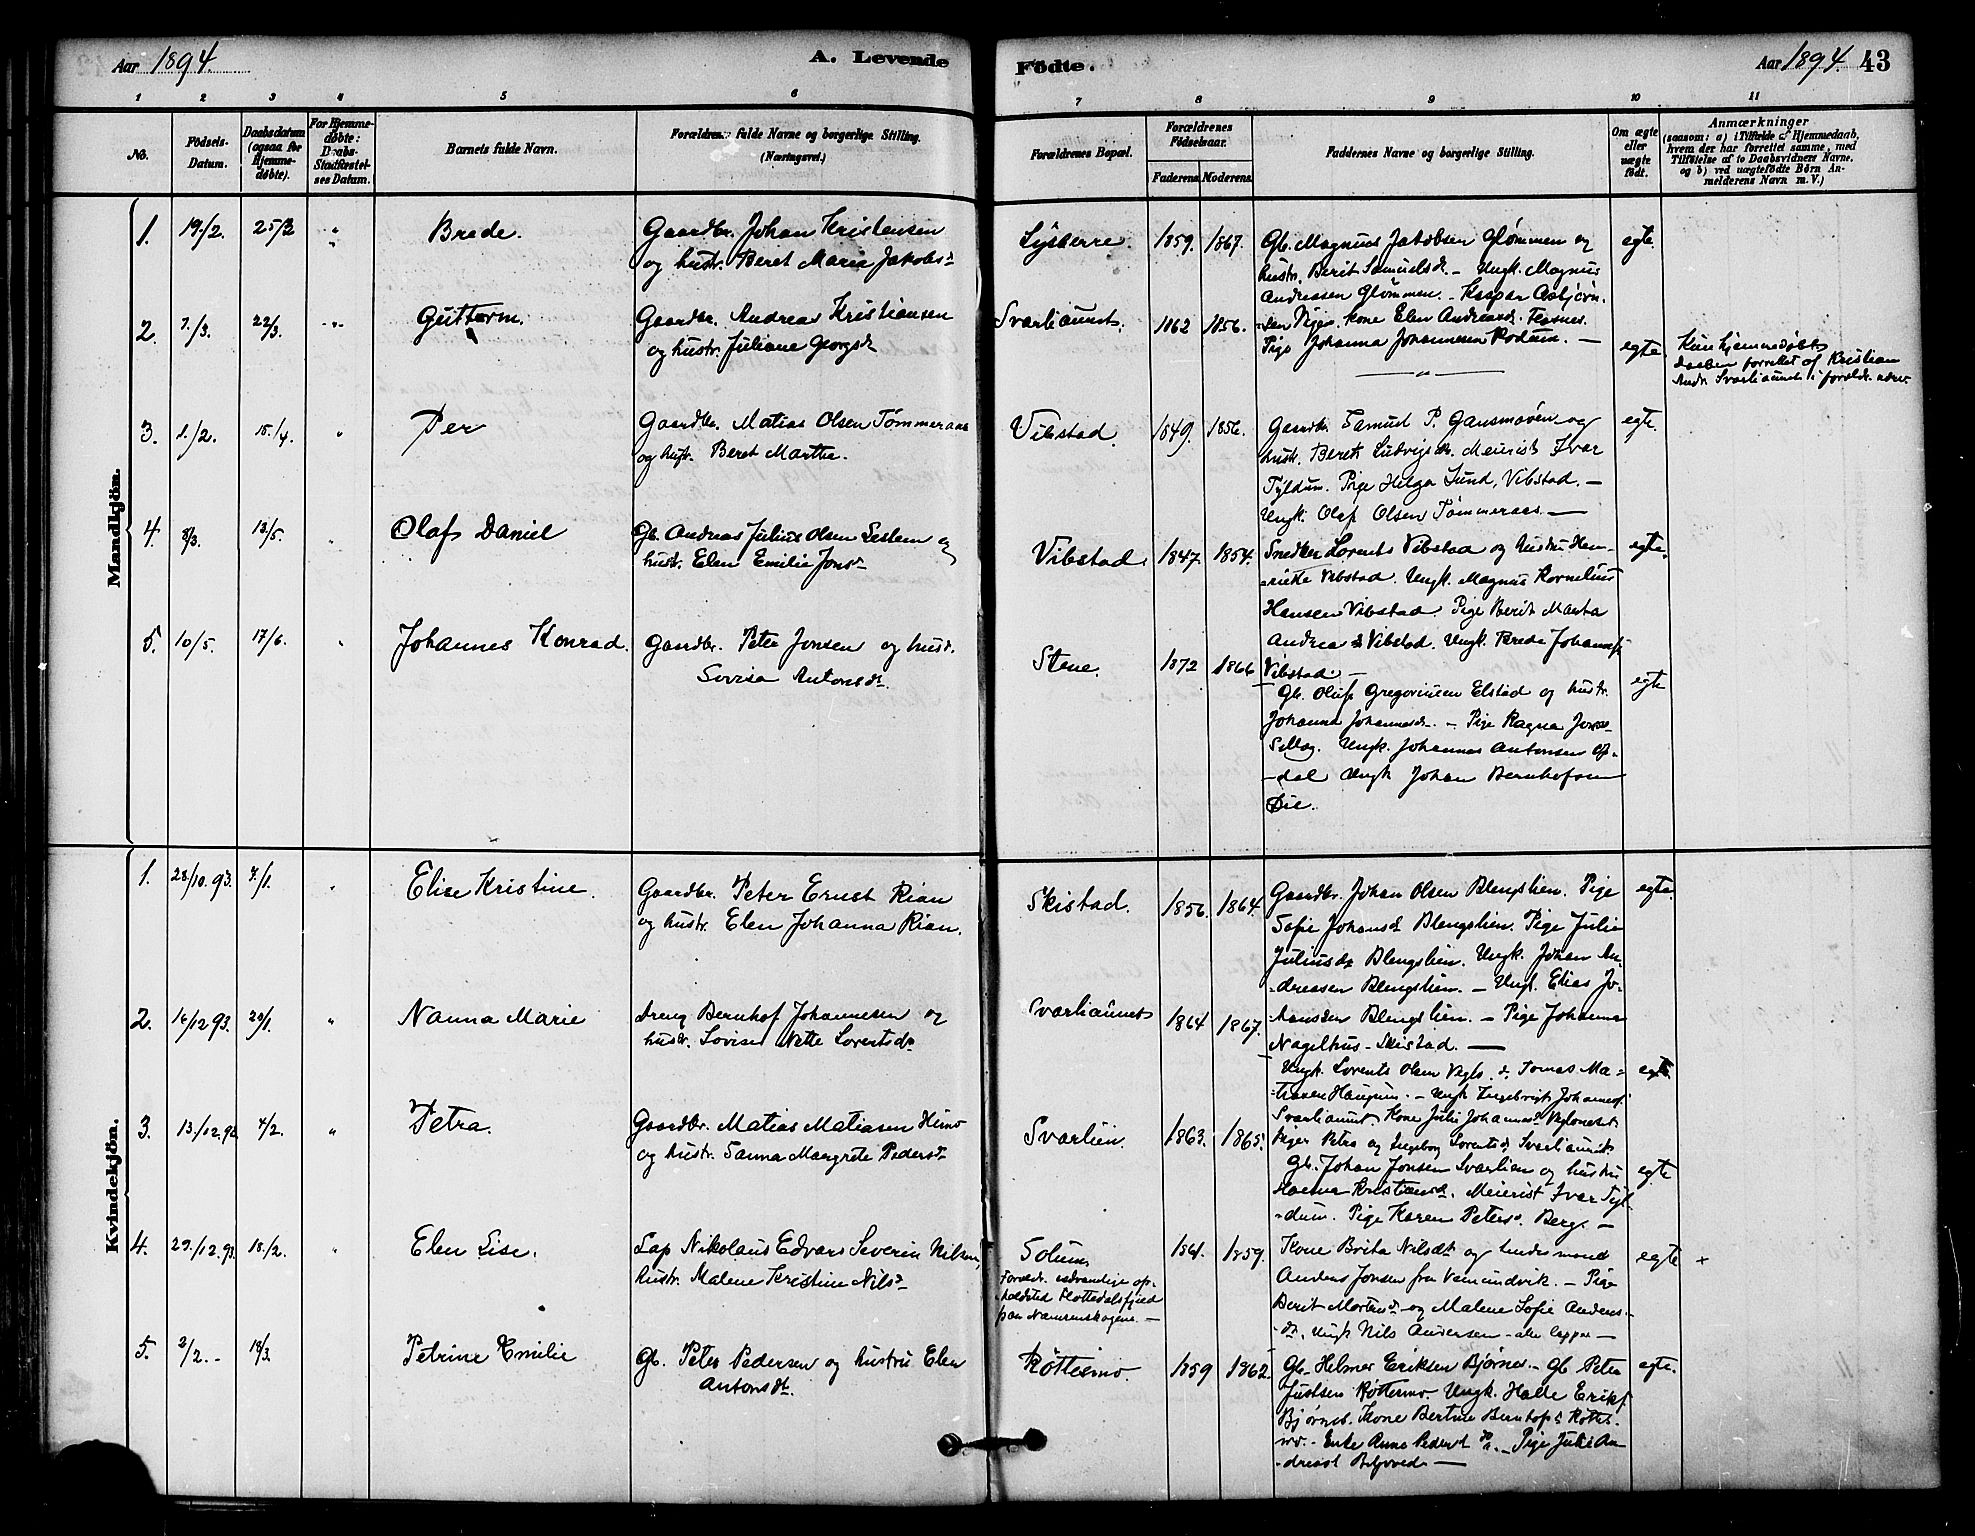 Aar 1894 A. Levende Fødte. Aar 1894. 43
1 2 3 4 5 6 7 8 9 10 11
No.
Fødsels-Datum.
Daabsdatum (ogsaa for Hjemmedøbte).
For Hjemmedøbte: Daabs-Stadfæstelses Datum.
Barnets fulde Navn.
Forældrenes fulde Navne og borgerlige Stilling.
(Næringsvei.)
Forældrenes Bopæl.
Forældrenes Fødselsaar.
Faderens. Moderens.
Faddernes Navne og borgerlige Stilling.
Om ægte eller uægte født.
Anmærkninger
(saasom: a) i Tilfælde af Hjemmedaab,
hvem der har forrettet samme, med
Tilføielse af to Daabsvidners Navne.
og b) ved uægtefødte Børn Anmelderens Navn m. V.)
Mandkjön.
1. 19/2. 25/3 " Brede. Gaardbr. Johan Kristensen
og hustr. Beret Maria Jakobsd.
Lysberre. 1859. 1867.
Gb. Magnus Jakobsen Glømmen og
hustr. Berit Samuelsd. - Ungk. Magnus
Andreasen Glømmen. - Kaspar Asbjørn-
egte.
2. 7./3. 22/3. " Guttorm. Gaardbr. Andreas Kristiansen
og hustr. Juliane Georgsd.
Svarliaunet. 1862 1856.
sen . Kone Elen Andreasd.
Pige Johanna Johannesen Rodum. —
— " —
egte.
Kun hjemmedøbt
daaben forrettet af Kristian
Andr. Svarliaunet i forældr. nærv.
3. 1./2. 15./4. " Per Gaardbr. Matias Olsen Tømmeraas
og hustr. Beret Martha.
Vibstad. 1849. 1856.
Gaardbr. Samuel P. Gansmoen og
hustr. Beret Ludvigsd. Meierist Ivar
Tyldum. Pige Helga Lund, Vibstad. —
Ungk. Olaf Olsen Tømmeraas. —
egte.
4. 8/3. 13/5. " Olaf Daniel Gb. Andreas Julius Olsen Seslem og
hustr. Elen Emilie Jonsd.
Vibstad. 1847. 1854.
Snedker Lorents Vibstad og hustru Hen-
-riette Vibstad. Ungk. Magnus Kornelius
Hansen Vibstad. Pige Berit Marta
Andreasd. Vibstad. Ungk. Brede Johannes.
Vibstad —
egte.
5. 10/5. 17/6. " Johannes Konrad. Gaardbr. Peter Jonsen og hust.
Lovisa Antonsd.
Stene. 1872 1866
Gb. Oluf Gregoriusen Elstad og hustr.
Johanna Johannesd. - Pige Ragna Jonsd.
Selbog. Ungk. Johannes Antonsen Op-
-dal Ungk Johan Bernhofsen
Øie.
egte
Kvindekjön.
1. 28/10.93. 7./1. " Elise Kristine. Gaardbr. Peter Ernst Rian
og hustr. Elen Johanna Rian.
Skistad. 1856. 1864.
Gaardbr. Johan Olsen Blengslien. Pige
Sofie Johansd. Blengslien. Pige Julie
Juliusd. Blengslien. Ungk. Johan An-
-dreasen Blengslien. - Ungk. Elias Jo-
hansen Blengslien. - Pige Johanna
Nagelhus - Skistad. —
egte.
2. 16/12 93. 20/1. " Nanna Marie Dreng Bernhof Johannesen og
hustr. Lovise Nette Lorentsd.
Svarliaunet 1864 1867.
Ungk. Lorents Olsen . d. Tomas Ma-
-tiasen Haugum. - Ungk Ingebrigt Johannes.
Svarliaunet. Kone Julie Johannesd.
Piger Petra og Ingeborg Lorentsd. Svarliaunet.
egte
3. 13./12.93. 4/2. " Petra. Gaardbr. Matias Matiasen Himo
og hustr. Sanna Margrete Pedersd.
Svarlien. 1863. 1865.
Gb. Johan Jonsen Svarlien og hustru
Hanna Kristiansd. Meierist Ivar Tyl-
-dum. Pige Karen Petersd. Berg. —
egte
4. 29./12.93. 18./2. " Elen Lise. Lap Nikolaus Edvars Severin Nilsen,
hustr. Malene Kristine Nilsd.
Solum,
Forældr. sædvanlige op-
-holdsted Flottedalsfjeld
paa Namsenskogene. —
1861. 1859.
Kone Brita Nilsdt. og hendes mand
Anders Jonsen fra Vemundvik. - Pige
Berit Mortensd. og Malene Sofie Anders-
-dt. Ungk Nils Andersen - alle lapper —
egte +
5. 2/2. - 18/3. Petrine Emilie Gb. Peter Pedersen og hustru Elen
Antonsdt.
Røttesmo. 1859 1862
Gb. Helmer Eriksen Bjørnes. - Gb Peter
Juulsen Røttesmo. Ungk. Halle Eriks.
Bjørnes. Kone Bertine Bernhofsd. Røttes-
mo. - Enke Anne Pedersd. - Pige Julie An-
dreasd. —
egte.